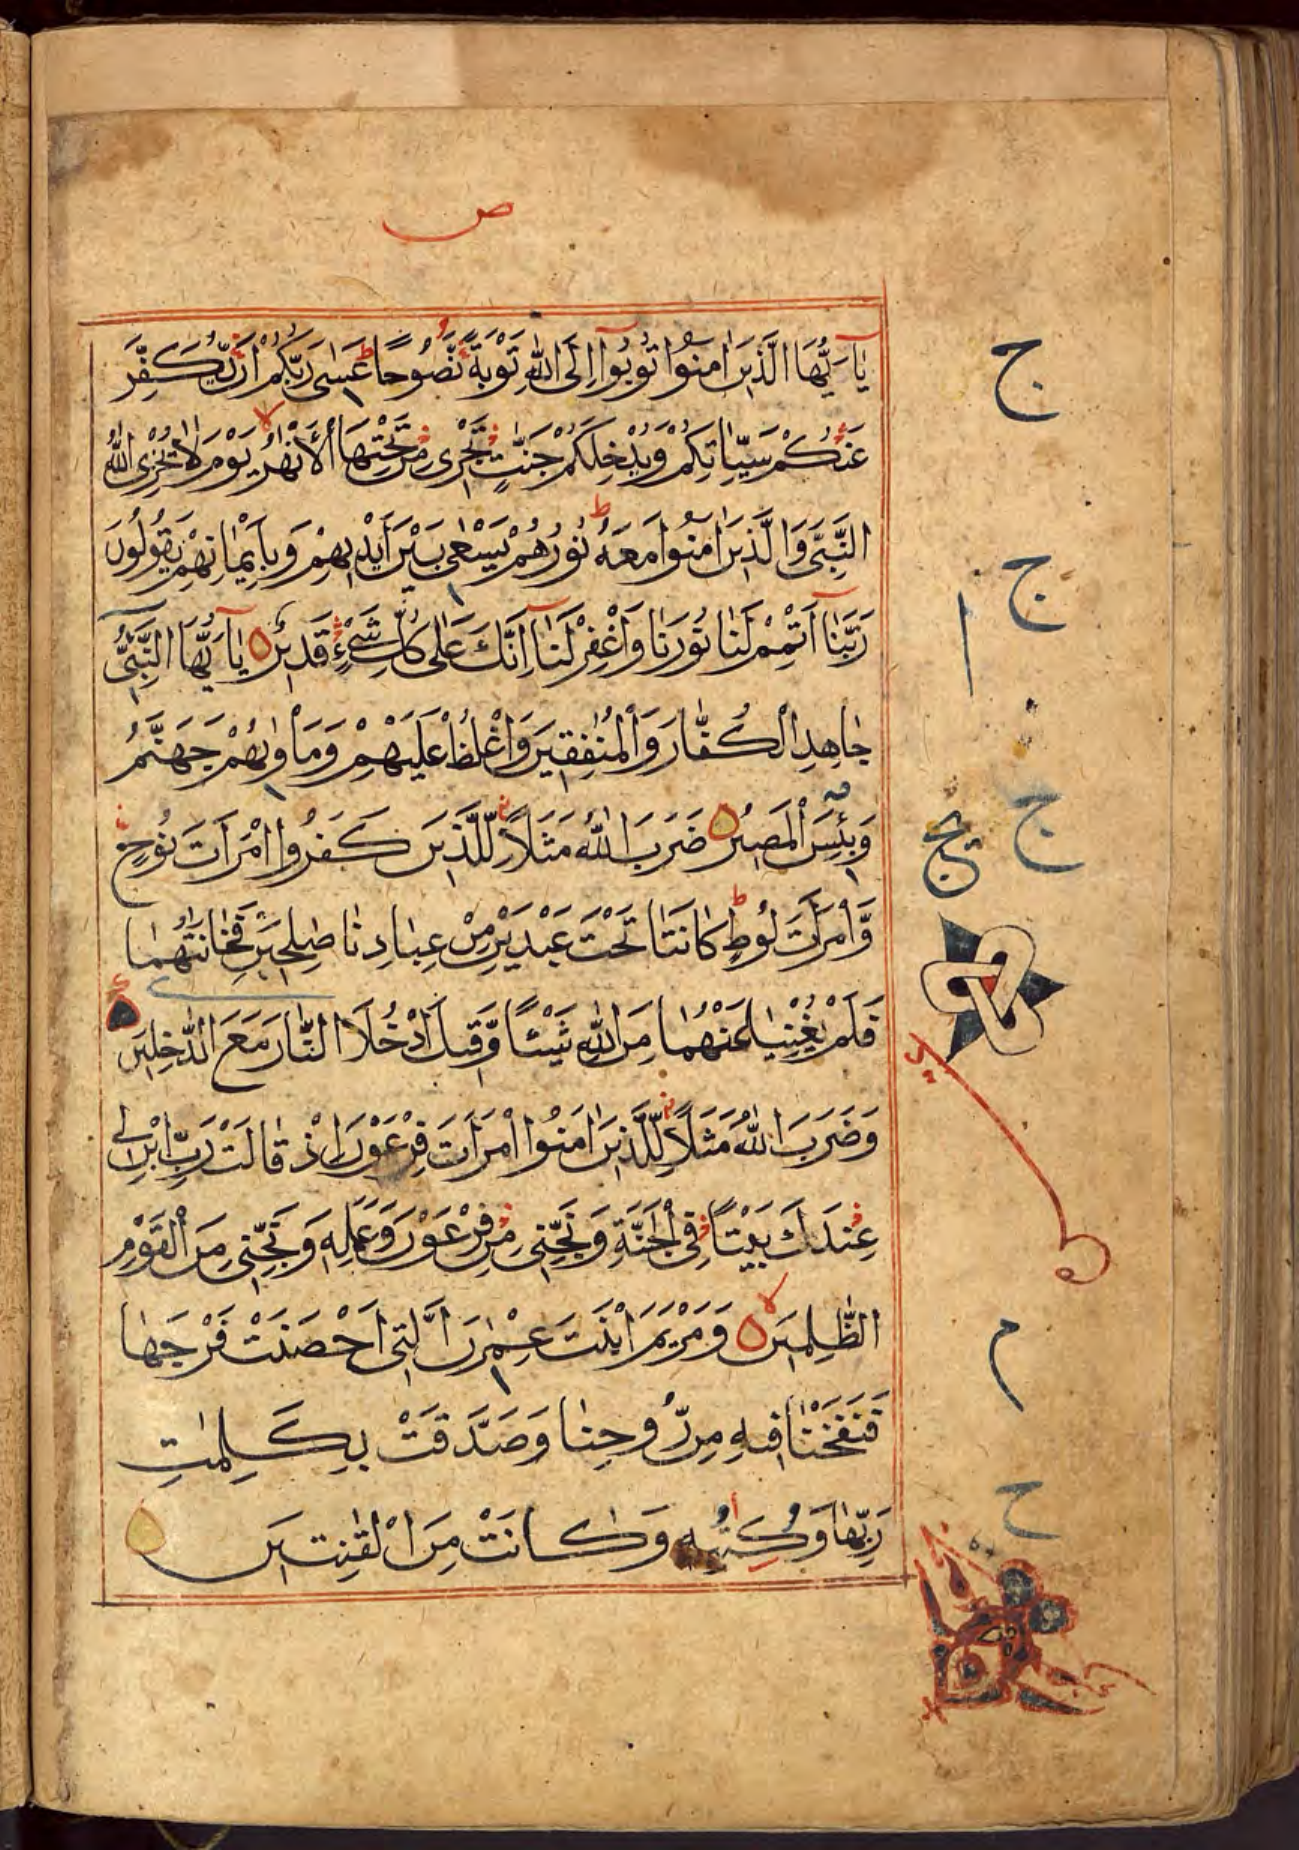 ص
يٰٓاَيُّهَا الَّذِينَ اٰمَنُوا تُوبُوٓا اِلَى اللّٰهِ تَوْبَةً نَّصُوحًا ط عَسٰى رَبُّكُمْ اَنْ يُّكَفِّرَ
عَنْكُمْ سَيِّاٰتِكُمْ وَيُدْخِلَكُمْ جَنّٰتٍ تَجْرِى مِنْ تَحْتِهَا الْاَنْهٰرُ لا يَوْمَ لَا يُخْزِى اللّٰهُ
النَّبِىَّ وَالَّذِينَ اٰمَنُوا مَعَهُ ط نُورُهُمْ يَسْعٰى بَيْنَ اَيْدِيهِمْ وَبِاَيْمَانِهِمْ يَقُولُونَ
رَبَّنَآ اَتْمِمْ لَنَا نُورَنَا وَاغْفِرْ لَنَآ اِنَّكَ عَلٰى كُلِّ شَىْءٍ قَدِيرٌ يٰٓاَيُّهَا النَّبِىُّ
جَاهِدِ الْكُفَّارَ وَالْمُنٰفِقِينَ وَاغْلُظْ عَلَيْهِمْ وَمَاْوٰىهُمْ جَهَنَّمُ
وَبِئْسَ الْمَصِيرُ ضَرَبَ اللّٰهُ مَثَلًا لِّلَّذِينَ كَفَرُوا امْرَاَتَ نُوحٍ
وَّامْرَاَتَ لُوطٍ ط كَانَتَا تَحْتَ عَبْدَيْنِ مِنْ عِبَادِنَا صٰلِحَيْنِ فَخَانَتٰهُمَا
فَلَمْ يُغْنِيَا عَنْهُمَا مِنَ اللّٰهِ شَيْـًٔا وَّقِيلَ ادْخُلَا النَّارَ مَعَ الدّٰخِلِينَ
وَضَرَبَ اللّٰهُ مَثَلًا لِّلَّذِينَ اٰمَنُوا امْرَاَتَ فِرْعَوْنَ اِذْ قَالَتْ رَبِّ ابْنِ لِى
عِنْدَكَ بَيْتًا فِى الْجَنَّةِ وَنَجِّنِى مِنْ فِرْعَوْنَ وَعَمَلِهِ وَنَجِّنِى مِنَ الْقَوْمِ
الظّٰلِمِينَ لا وَمَرْيَمَ ابْنَتَ عِمْرٰنَ الَّتِى اَحْصَنَتْ فَرْجَهَا
فَنَفَخْنَا فِيهِ مِنْ رُّوحِنَا وَصَدَّقَتْ بِكَلِمٰتِ
رَبِّهَا وَكُتُبِهِ وَكَانَتْ مِنَ الْقٰنِتِينَ
ج
ج
ج
م
ح